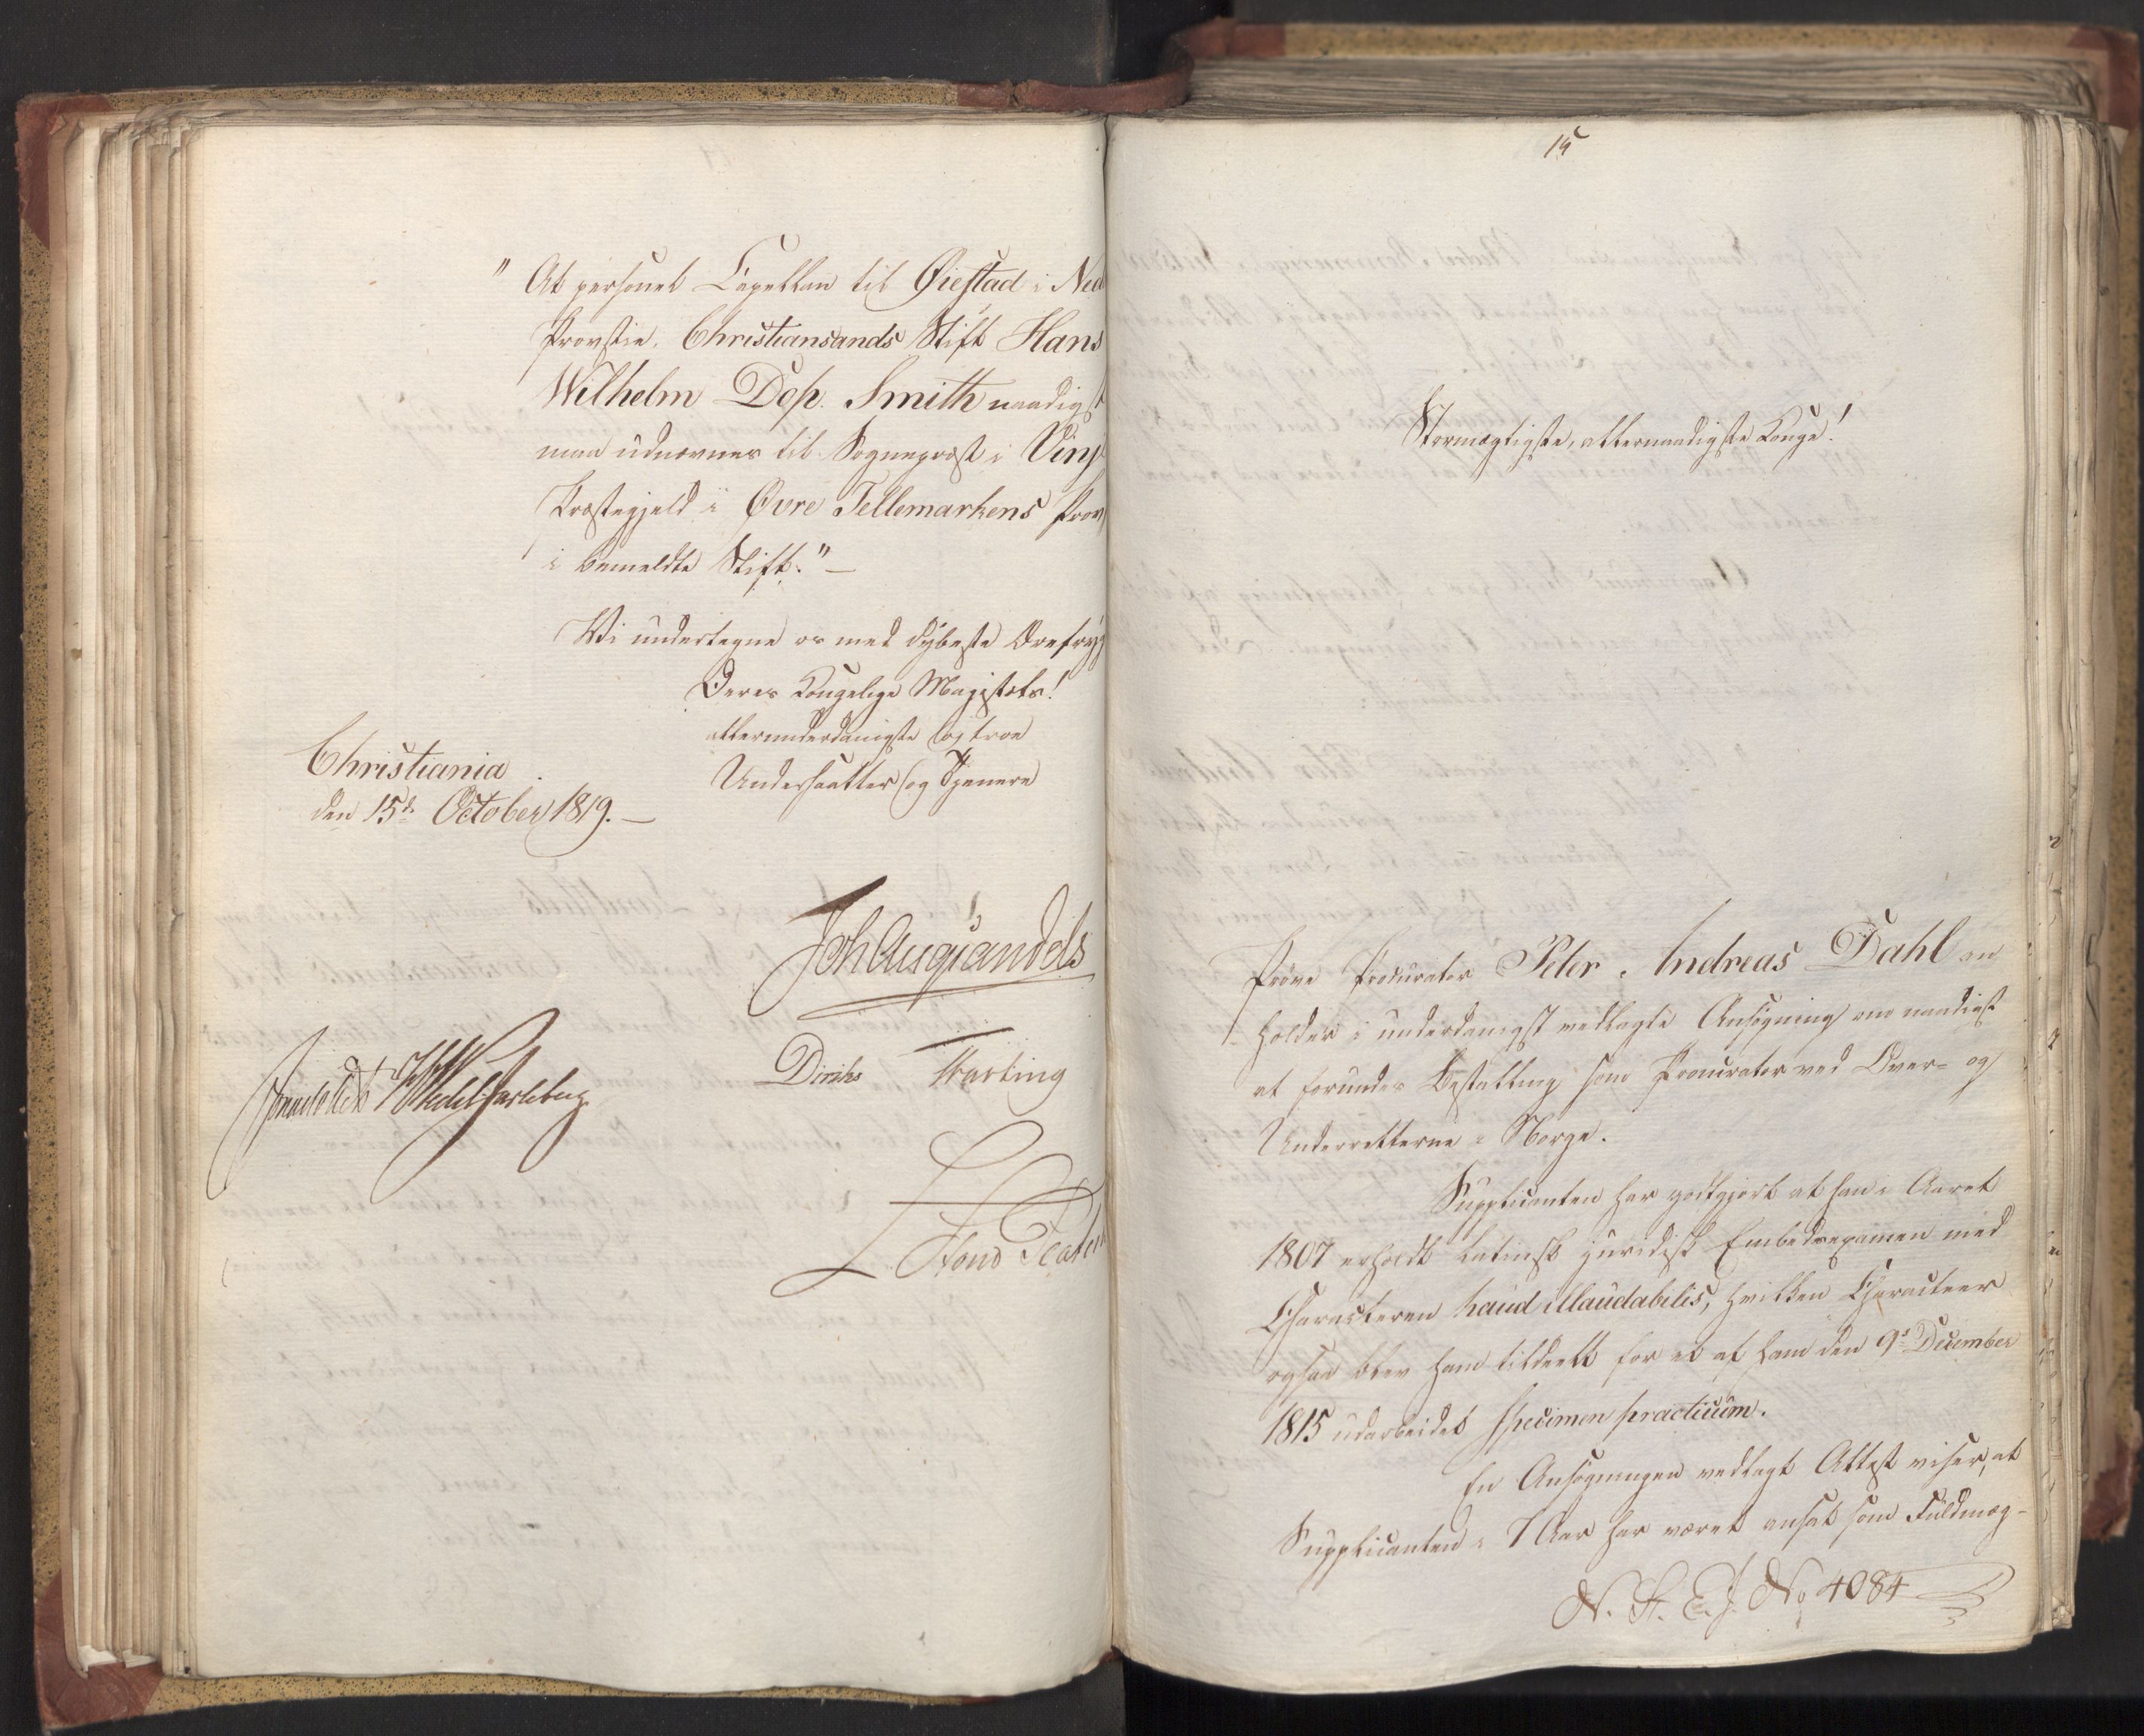 " At personel Capellan til Øiestad i Ned
Provstie, Christiansands Stift Hans
Wilhelm Dop. Smith naadigst
maa udnævnes til Sognepræst i Vinj
Præstegjeld i Øvre Tellemarkens Prov
i bemeldte Stift." —
Vi undertegne os med dybeste Ærefryg
Deres Kongelige Majestæts!
allerunderdanigste og troe
Undersaatter og Tjenere
Christiania
den 15de October 1819. —
Joh Aug Sandels
Sommerfeldt HWedel Jarlsberg
Diriks Fasting
15
Stormægtigste, allernaadigste Konge!
Prøve Procurator Peter Andreas Dahl an
holder i underdanigst vedlagte Ansøgning om naadigst
at forundes Bestalling som Procurator ved Over- og
Underretterne i Norge.
Supplicanten har godtgjort at han i Aaret
1807 erholdt latinsk juridisk Embedsexamen med
Characteren haud illaudabilis, hvilken Characteer
ogsaa blev ham tildeelt for et af ham den 9de December
1815 udarbeidet Specimen practicum.
En Ansøgningen vedlagt Attest viser, at
Supplicanten i 7 Aar har været ansat som Fuldmæg-
N. St. E. J. No 4084